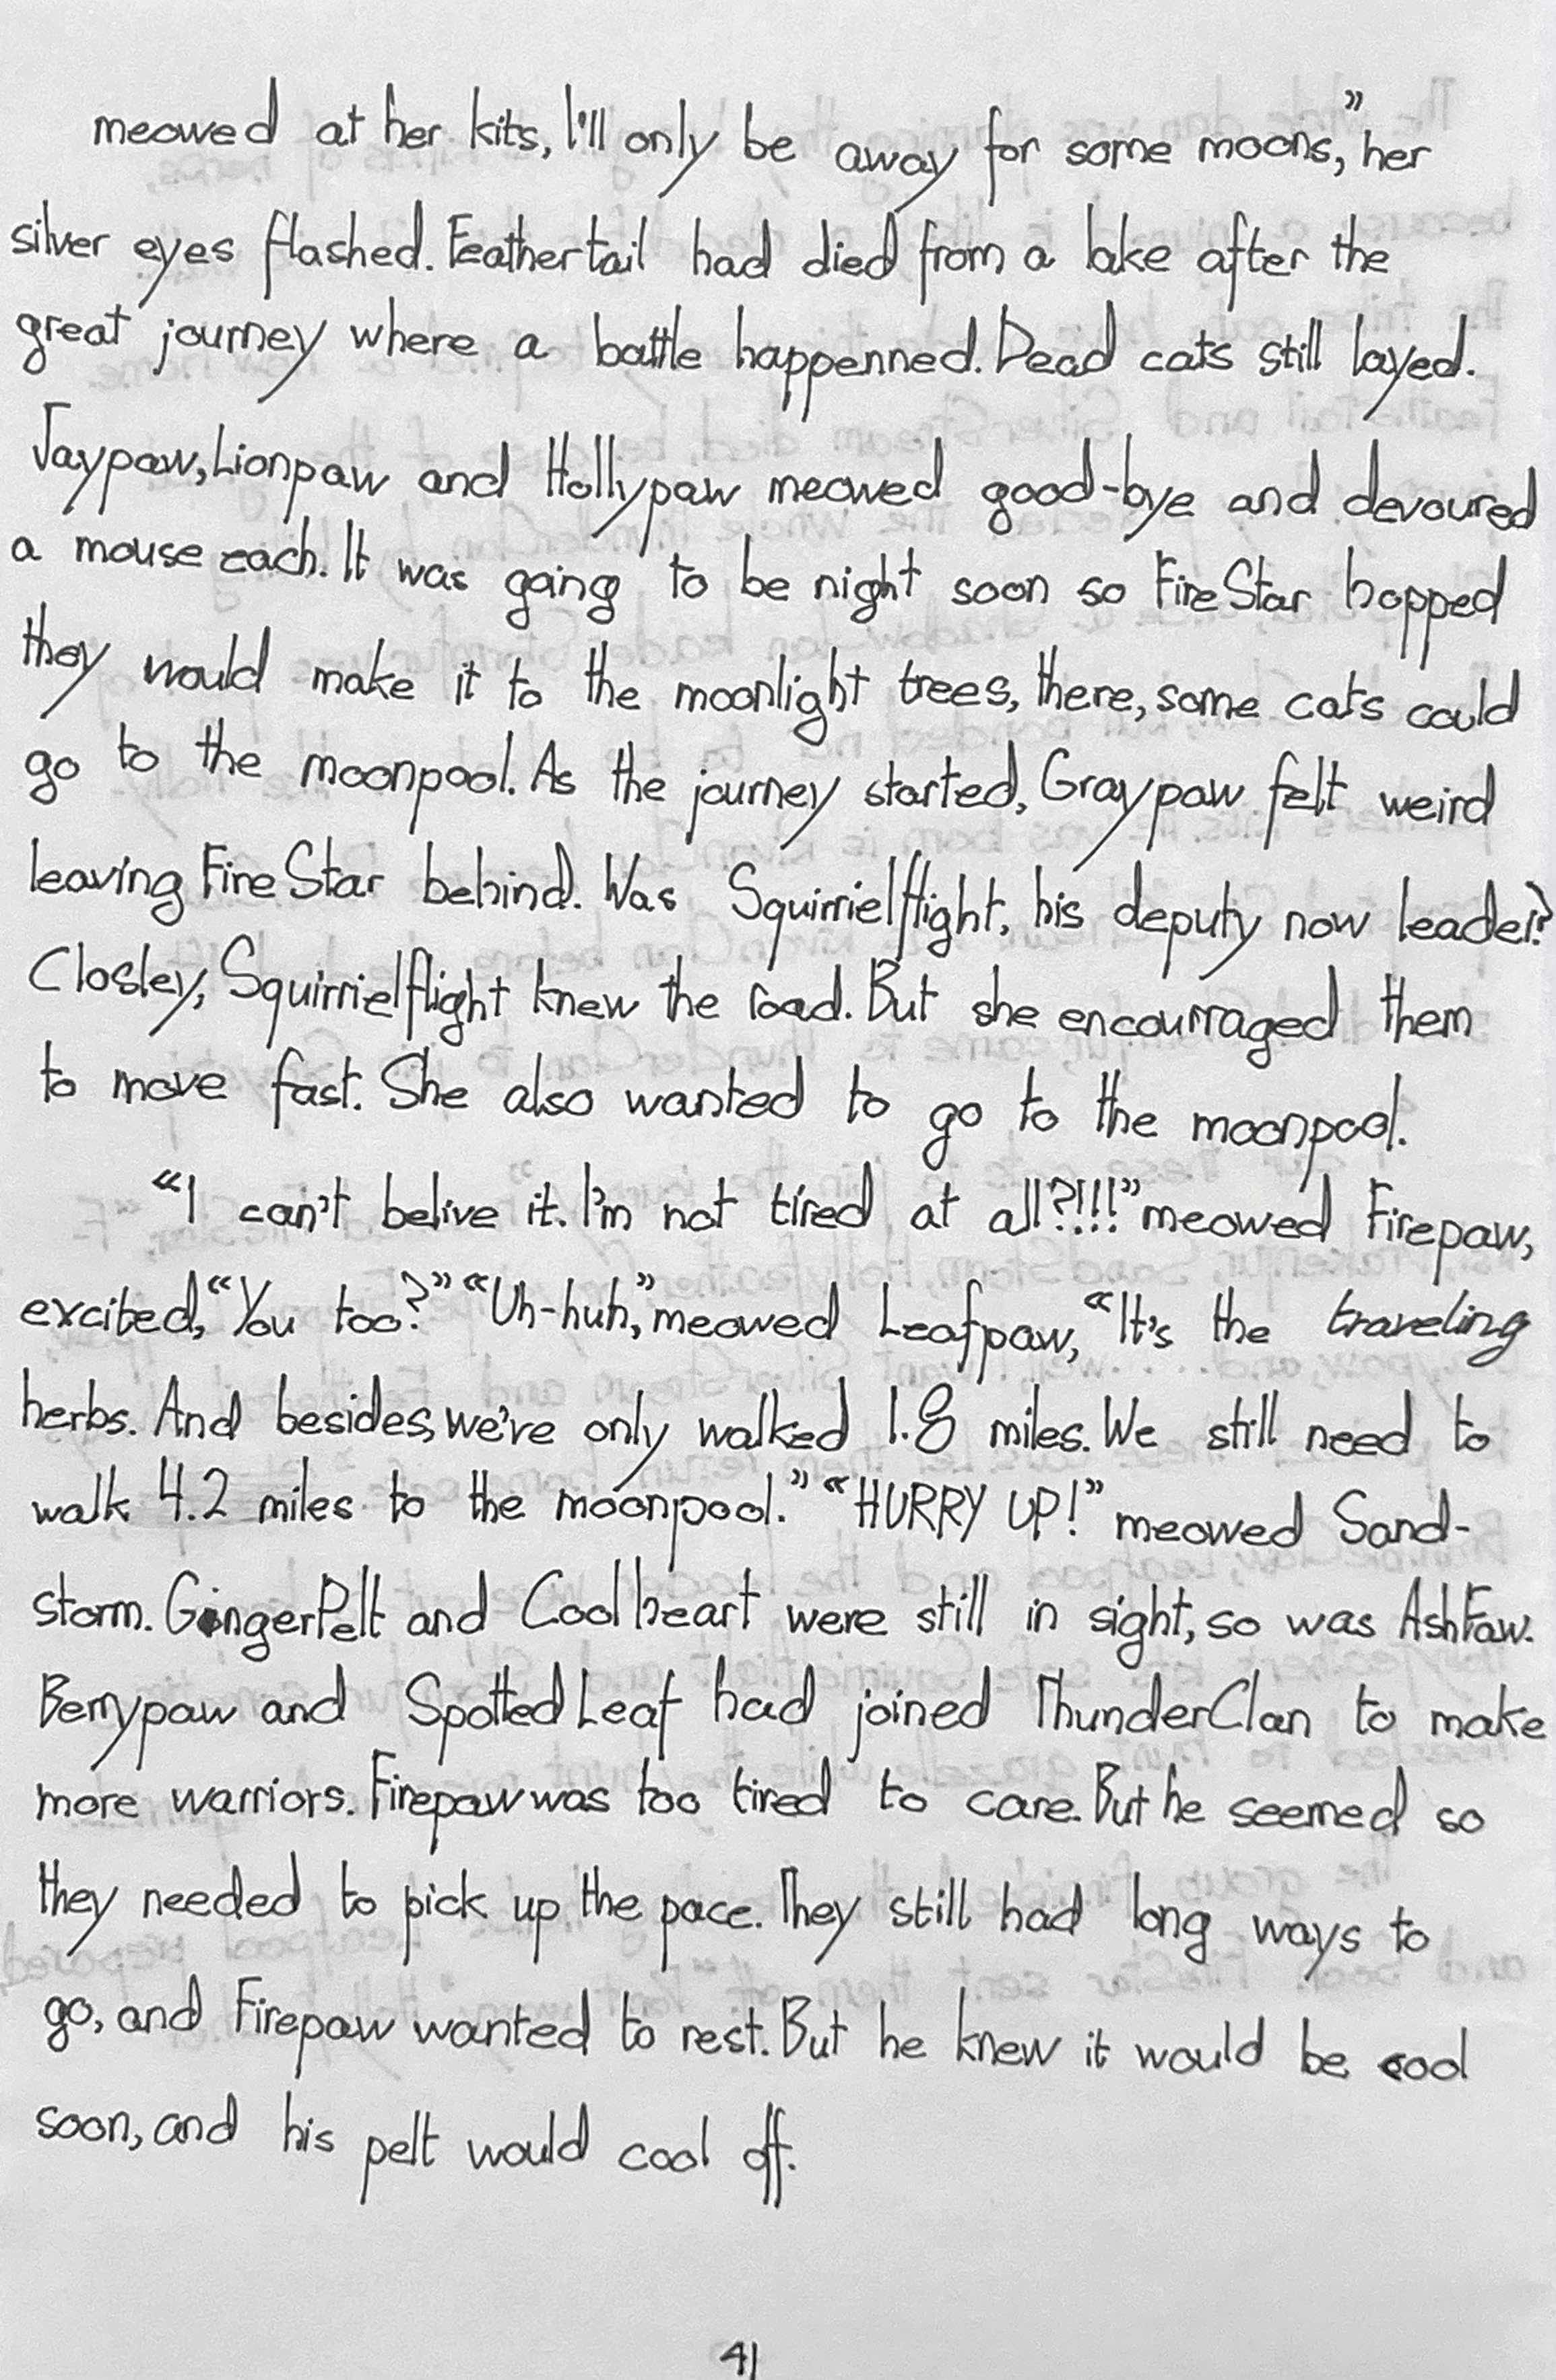 meowed at her kits, I'll only be away for some moons," her
silver eyes flashed. Feathertail had died from a lake after the
great journey where a battle happenned. Dead cats still layed.
Jaypaw, Lionpaw and Hollypaw meowed good-bye and devoured
a mouse each. It was going to be night soon so FireStar hopped
they would make it to the moonlight trees, there, some cats could
go to the moonpool. As the journey started, Graypaw felt weird
leaving FireStar behind. Was Squirrielflight, his deputy now leader?
Closley, Squirrielflight knew the road. But she encourraged them
to move fast. She also wanted to go to the moonpool.
"I can't belive it. I'm not tired at all?!!!" meowed Firepaw,
excited, "You too?" "Uh-huh," meowed Leafpaw, "It's the traveling
herbs. And besides, we've only walked 1.8 miles. We still need to
walk 4.2 miles to the moonpool." "HURRY UP!" meowed Sand-
storm. GingerPelt and Coolheart were still in sight, so was AshFaw.
Berrypaw and SpottedLeaf had joined ThunderClan to make
more warriors. Firepaw was too tired to care. But he seemed so
they needed to pick up the pace. They still had long ways to
go, and Firepaw wanted to rest. But he knew it would be cool
soon, and his pelt would cool off.
41